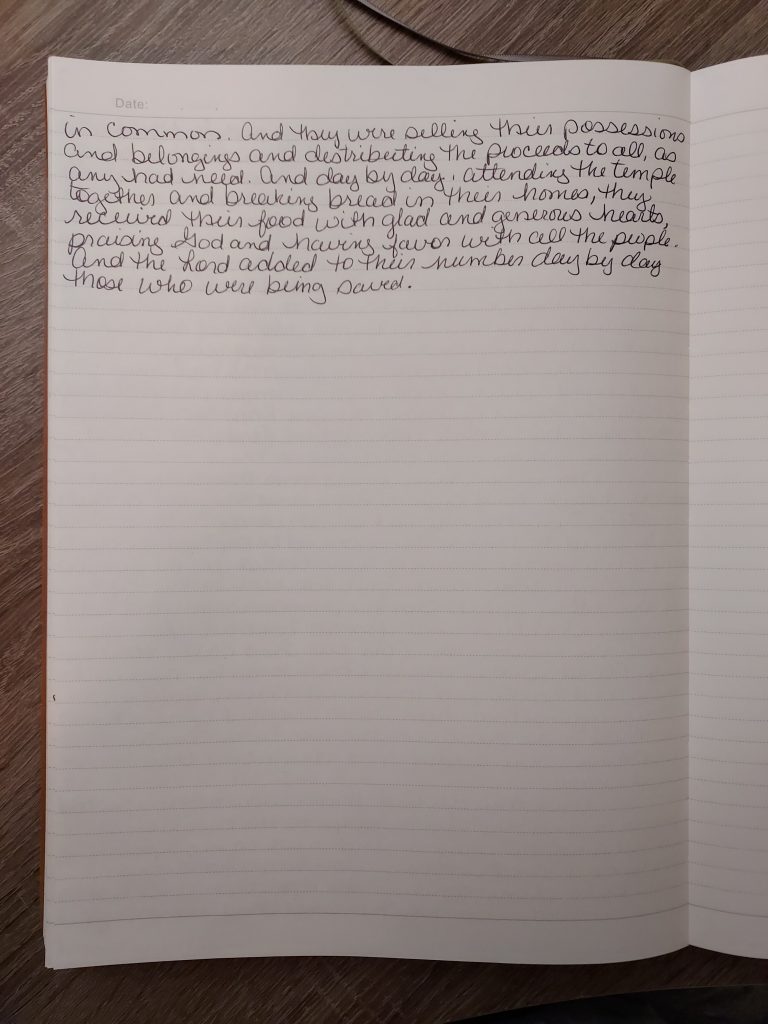 Date:
in common. And they were selling their possessions
and belongings and destribeting the proceeds to all, as
any had need. And day by day, attending the temple
together and breaking bread in their homes, they
received their food with glad and generous hearts,
praising God and having favor with all the people.
And the Lord added to their number day by day
those who were being saved.